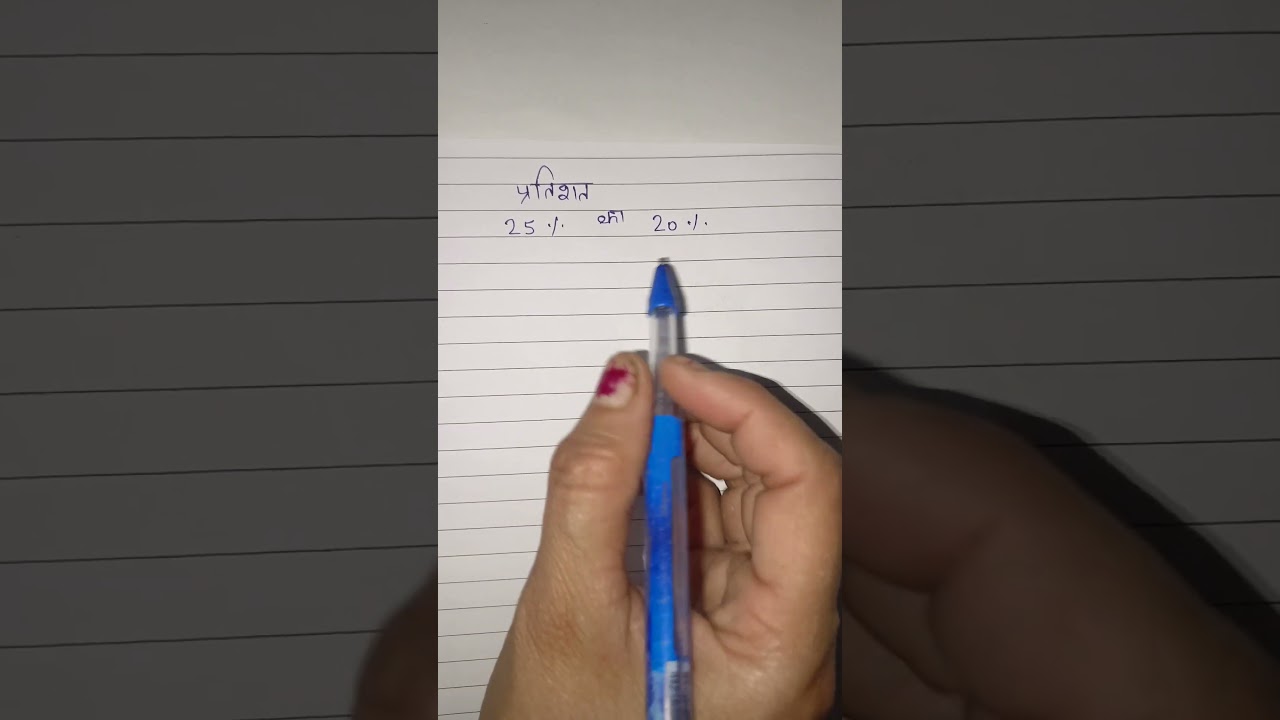 प्रतिशत
25 % का 20 %